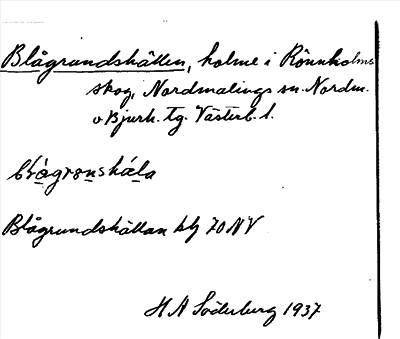 Blågrundshällen, holme i Rönnholms
skog, Nordmalings sn. Nordm.
o Bjurh. tg. Västerb. l.
Blågrundshällan blg 70 NV
H A Söderberg 1937